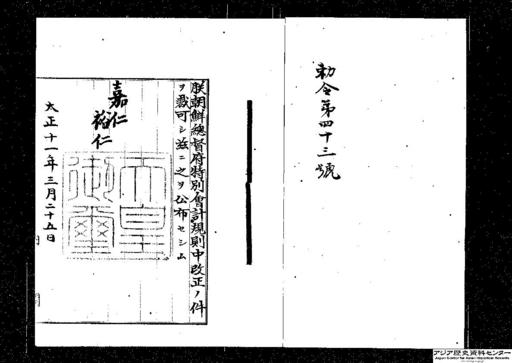 勅令第四十三號
朕朝鮮總督府特別會計規則中改正ノ件
ヲ裁可シ茲ニ之ヲ公布セシム
嘉仁
裕仁
天皇
御璽
大正十一年三月二十五日
アジア歴史資料センター
Japan Center for Asian Historical Records